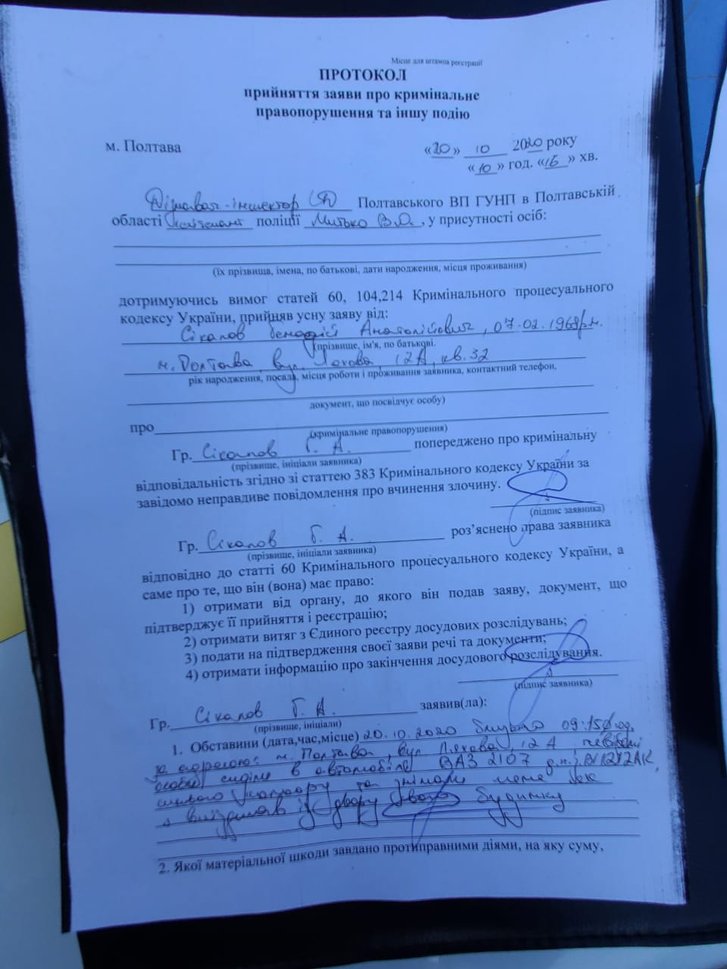 Місце для штампа реєстрації
ПРОТОКОЛ
прийняття заяви про кримінальне
правопорушення та іншу подію
м. Полтава
«20» 10 2020 року
«10» год. «16» хв.
Дізнавач-інспектор СД Полтавського ВП ГУНП в Полтавській
області лейтенант поліції Митько В.О., у присутності осіб:
(їх прізвища, імена, по батькові, дати народження, місця проживання)
дотримуючись вимог статей 60, 104,214 Кримінального процесуального
кодексу України, прийняв усну заяву від:
Сікалов Генадій Анатолійович, 07.02.1968р.н.
(прізвище, ім'я, по батькові.
м. Полтава, вул. Ляхова, 12А, кв. 32
рік народження, посада, місця роботи і проживання заявника, контактний телефон,
документ, що посвідчує особу)
про
(кримінальне правопорушення)
Гр. Сікалов Г. А. попереджено про кримінальну
(прізвище, ініціали заявника)
відповідальність згідно зі статтею 383 Кримінального кодексу України за
завідомо неправдиве повідомлення про вчинення злочину.
(підпис заявника)
Гр. Сікалов Г. А. роз’яснено права заявника
(прізвище, ініціали заявника)
відповідно до статті 60 Кримінального процесуального кодексу України, а
саме про те, що він (вона) має право:
1) отримати від органу, до якого він подав заяву, документ, що
підтверджує її прийняття і реєстрацію;
2) отримати витяг з Єдиного реєстру досудових розслідувань;
3) подати на підтвердження своєї заяви речі та документи;
4) отримати інформацію про закінчення досудового розслідування.
(підпис заявника)
Гр. Сікалов Г. А. заявив(ла):
(прізвище, ініціали)
1. Обставини (дата,час,місце) 20.10.2020 близько 09:15 год.
за адресою: м. Полтава, вул. Ляхова, 12 А, невідомі
особи сиділи в автомобілі ВАЗ 2107 д.н.з.
кольору та знімали мене як
я виїзджав із двору свого будинку
2. Якої матеріальної шкоди завдано протиправними діями, на яку суму,